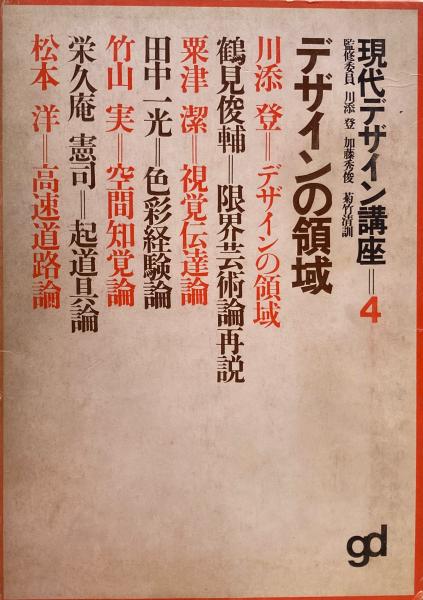 現代デザイン講座=4
監修委員 川添 登 加藤秀俊 菊竹清訓
デザインの領域
川添 登=デザインの領域
鶴見俊輔=限界芸術論再説
粟津 潔=視覚伝達論
田中一光=色彩経験論
竹山 実=空間知覚論
栄久庵 憲司=起道具論
松本 洋=高速道路論
gd